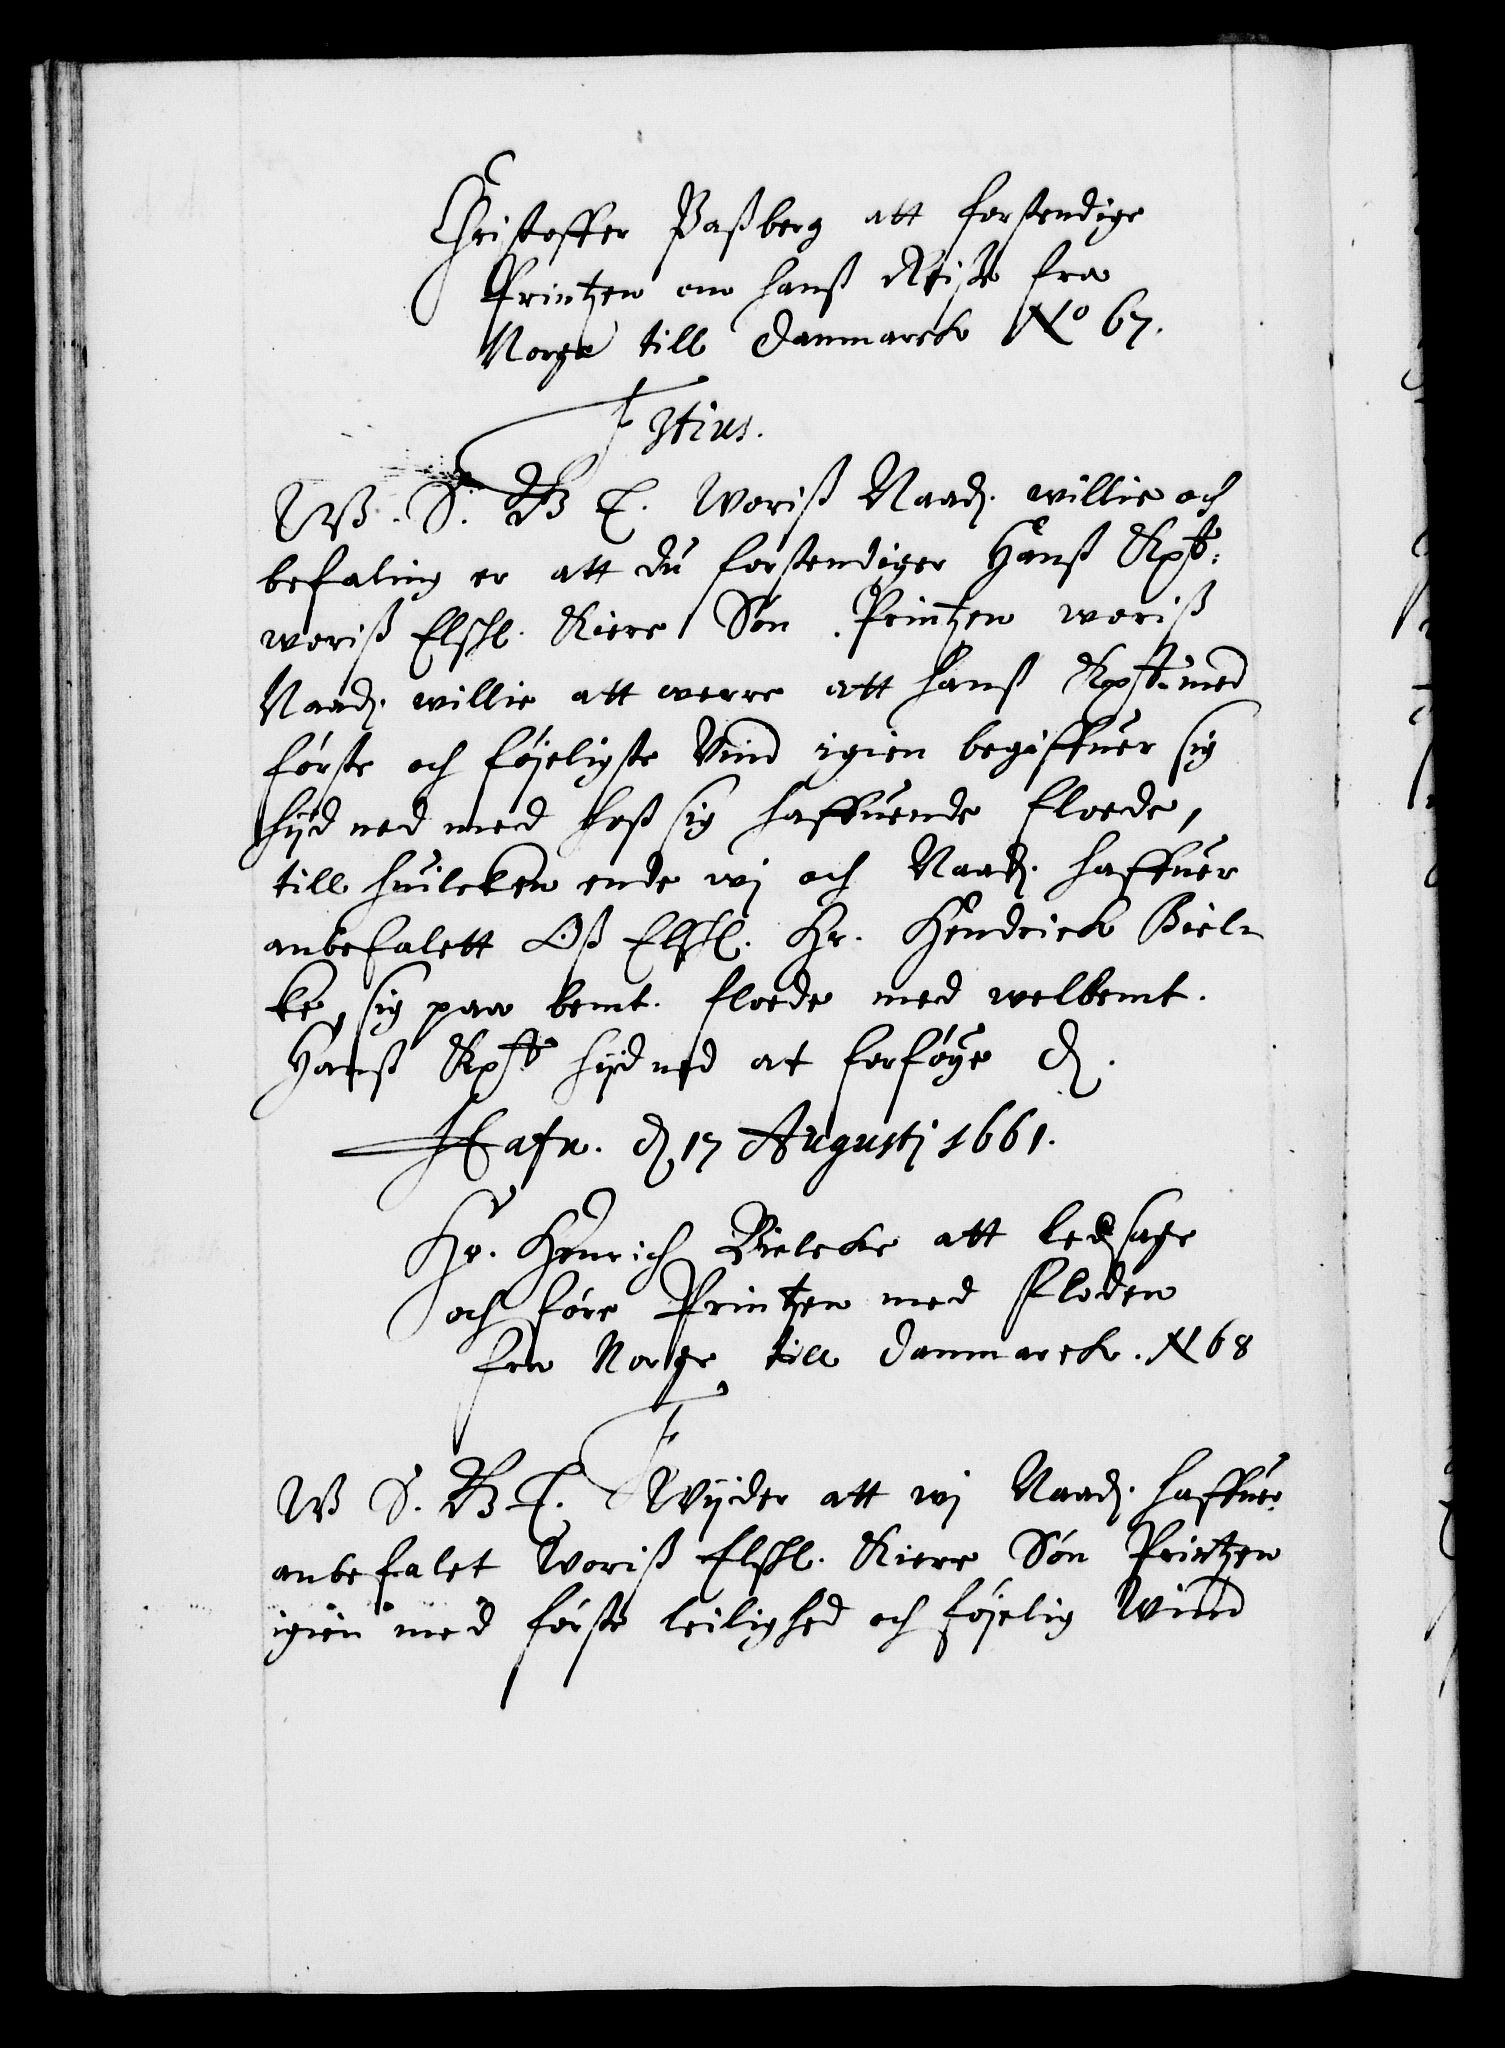 Christoffer Paßberg att forstendige
Printzen om hanß Reiße fra
Norge till Danmarck No 67.
F 3tius.
W. S. G T. Woriß Naad. willie och
befaling er att du forstendiger Hanß Kp:
woriß Elschl. Kiere Søn Printzen woriß
Naad. willie att werre att hanß Kp: med
første och føjeligste Vind igien begiffuer sig
hijd ned med hoß sig haffuende floede,
till huilcken ende wj och Naad. haffuer
anbefalett Oß Elschl. Hr. Hendrick Biel-
ke, sig paa bemt. floede med welbemt.
Hanß Kp hijd ned at forføye D.
Hafn. d 17 Augustj 1661.
Hr. Henrich Bielcke att ledsage
och føre Printzen med Floden
fra Norge till Danmarck. N 68
F
W S. G T. Wijder att wj Naad. haffuer
anbefalet Woriß Elschl. Kiere Søn Printzen
igien med første leilighed och føjelig Wind